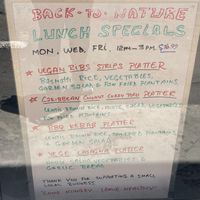 BACK-TO-NATURE
LUNCH SPECIALS
MON, WED, FRI, 12PM-3PM $16.99
★ VEGAN RIBS STRIPS PLATTER
RICE, VEGETABLES,
GARDEN SALAD & PAN FRIED PLANTAINS
★ CARIBBEAN CHUNKY CURRY PLATTER
BROWN RICE, VEGETABLES
PAN FRIED PLANTAINS
★ BBQ KEBAB PLATTER
BROWN RICE, PLANTAINS
& GARDEN SALAD
★ VEGE LASAGNA PLATTER
VEGETABLES &
GARLIC BREAD
THANK YOU FOR SUPPORTING A SMALL
LOCAL BUSINESS
COME HUNGRY, LEAVE HEALTHY